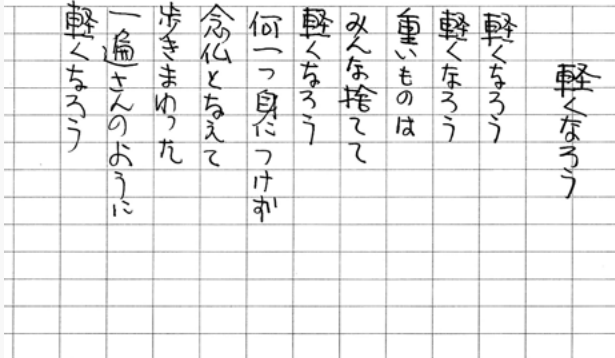 軽くなろう
軽くなろう
軽くなろう
重いものは
みんな捨てて
軽くなろう
何一つ身につけず
念仏となえて
歩きまわった
一遍さんのように
軽くなろう